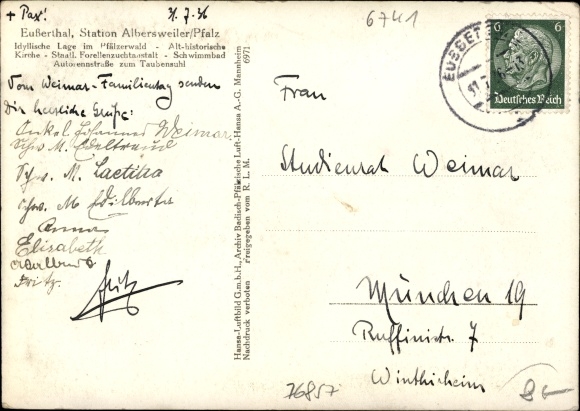 + Pax!
31.7.36
6741
Eußerthal, Station Albersweiler/Pfalz
Idyllische Lage im Pfälzerwald - Alt-historische
Kirche - Staatl. Forellenzuchtanstalt - Schwimmbad
Autorennstraße zum Taubensuhl
Vom Weimar-Familientag senden
Dir herzliche Grüße:
Onkel Johannes Weimar
Schw. M. Edeltrud
Schw. M. Laetitia
Schw. M. Edilberta
Anna
Elisabeth
Adalbert
Fritz.
Fritz
Hansa-Luftbild G.m.b.H., Archiv Badisch-Pfälzische Luft-Hansa A.-G. Mannheim
Nachdruck verboten Freigegeben vom R. L. M. 6971
6 6
Deutsches Reich
Frau
Studienrat Weimar
München 19
Ruffinistr. 7
76857